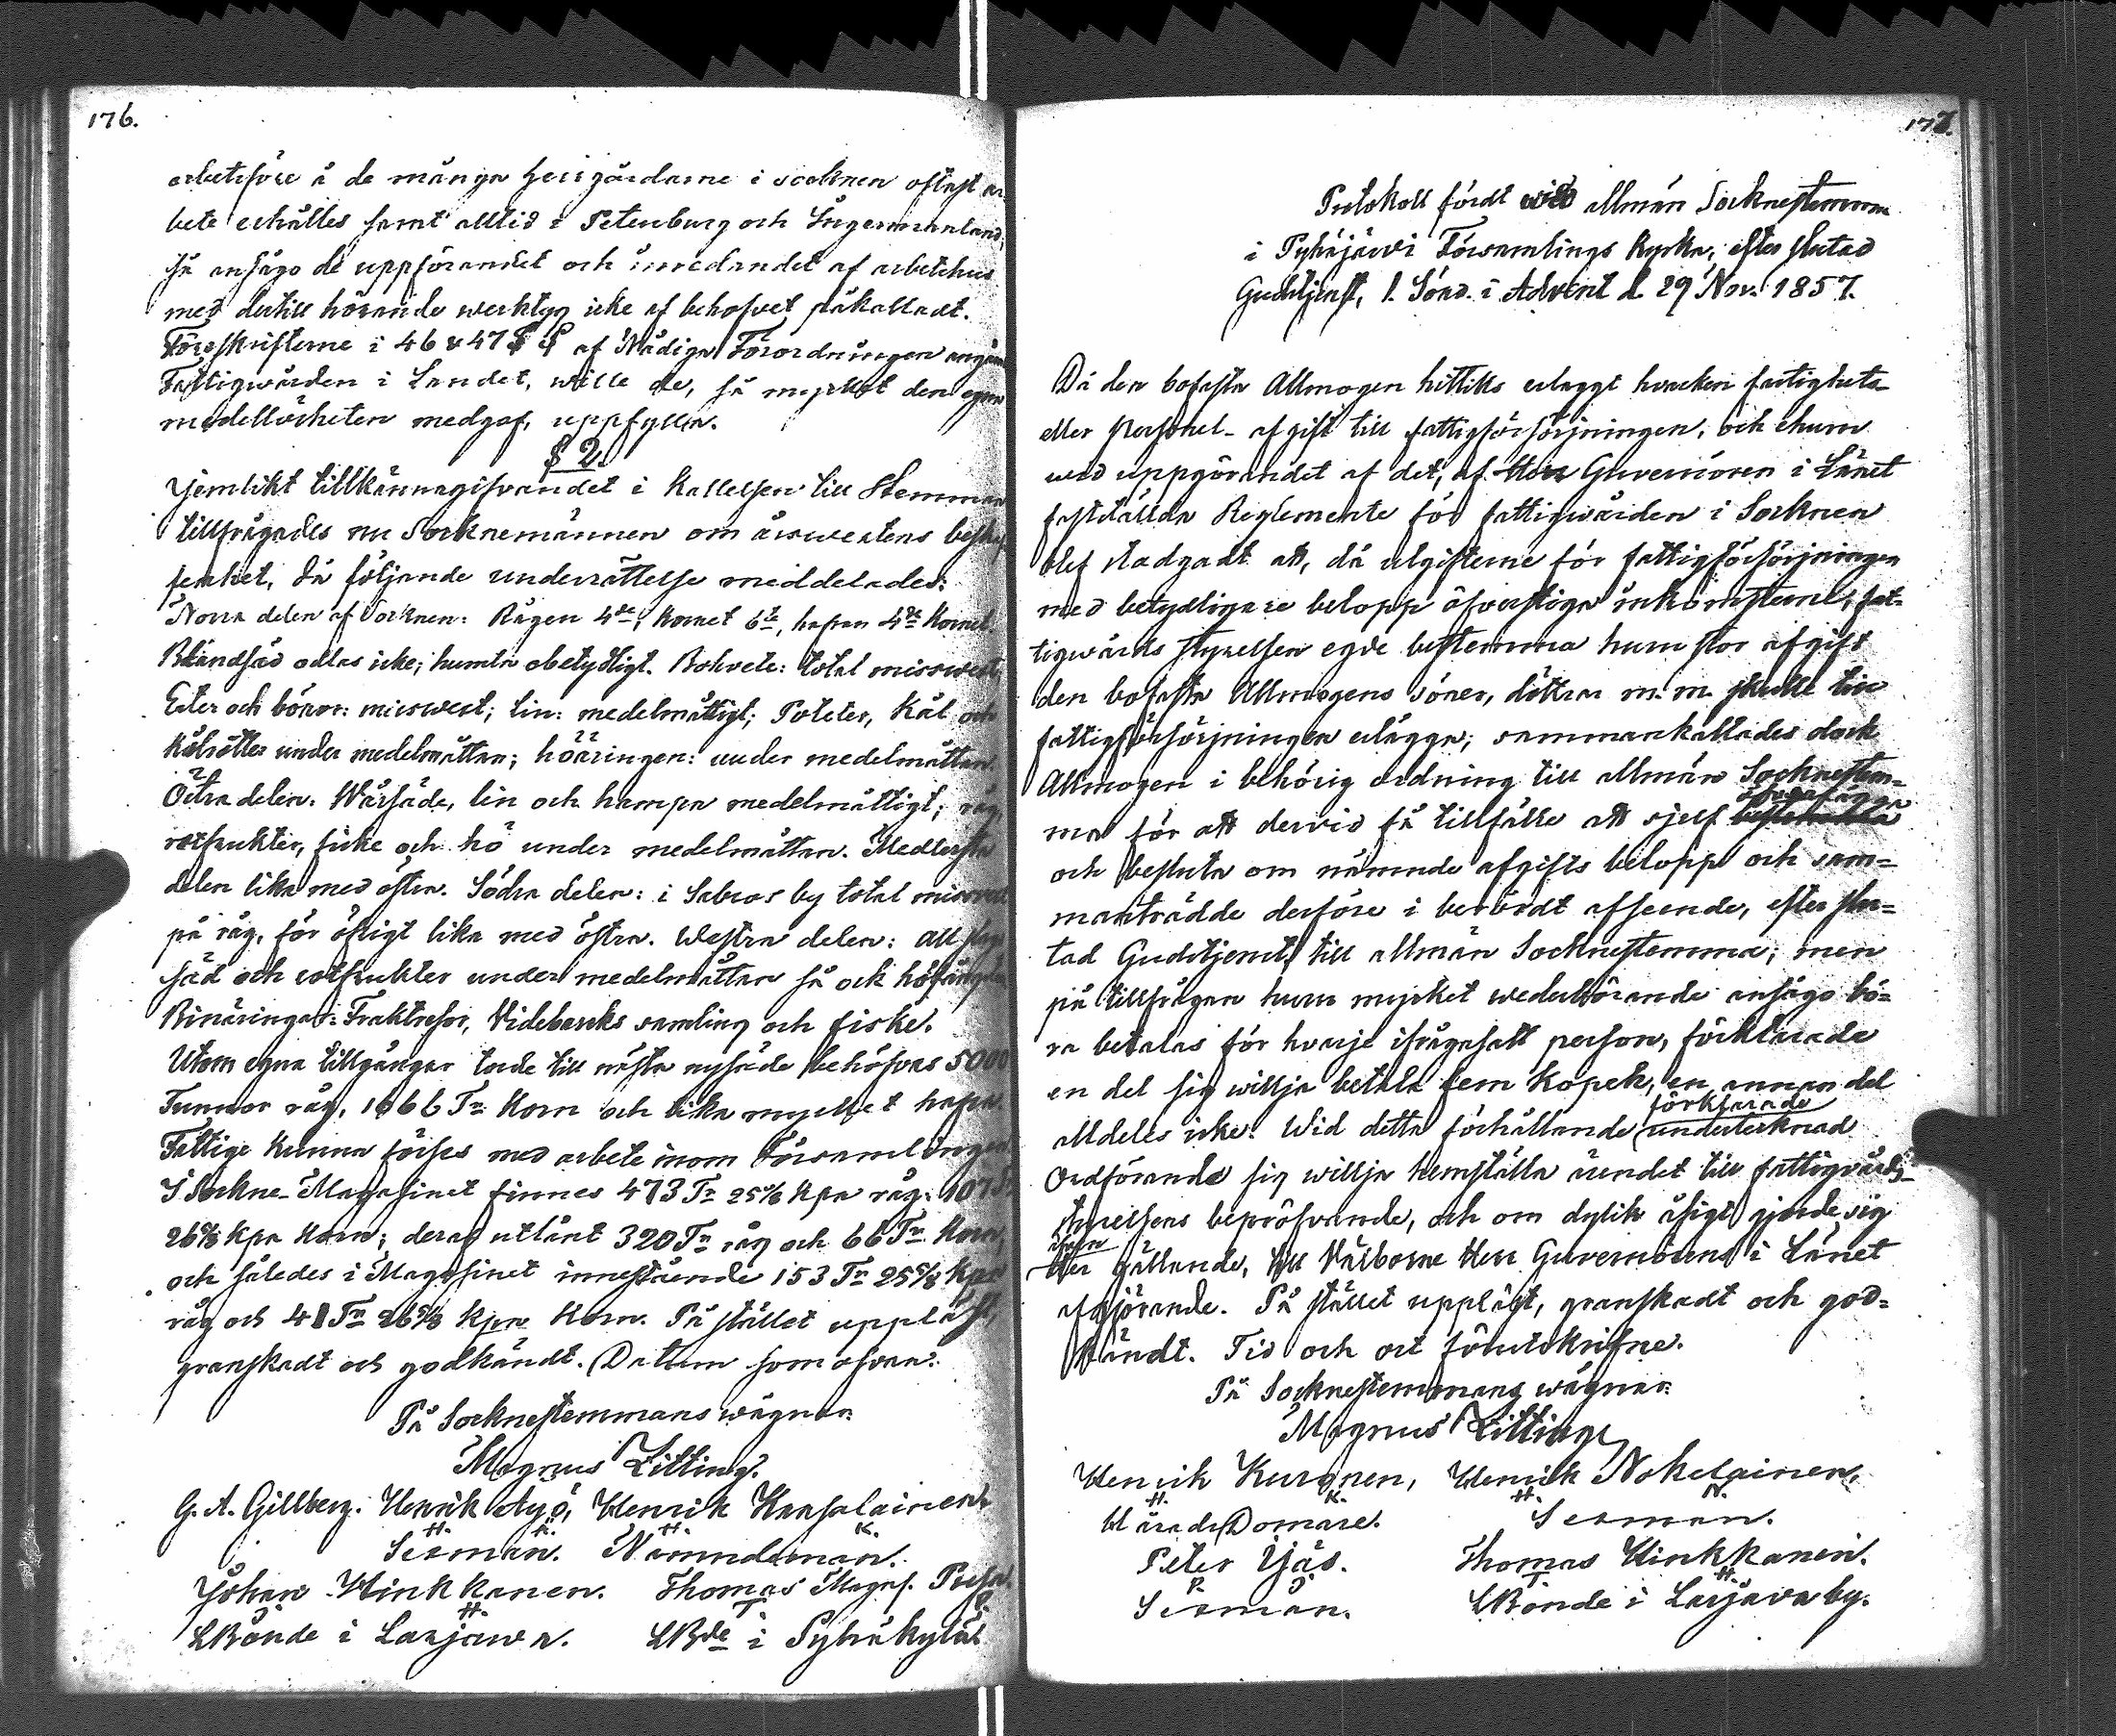 176.
arbetsföre å de många herrgårdarne i socknen oftast ar
bete erhålles samt alltid i Petersburg och Ingermanland;
så ansågo de uppförandet och inredandet af arbetshus
med dertill hörande werktyg icke af behofvet påkalladt.
Föreskrifterne i 46 & 47 § § af Nådiga Förordningen angåen
Fattigwården i Landet, wille de, så mycket den egna
medellösheten medgaf, uppfylla.
§ 2.
Jemlikt tillkännagifvandet i Kallelsen till Stemman
tillfrågades nu Socknemännen om årswextens beskaf
fenhet, då följande underrättelse meddelades:
Norra delen af Socknen: Rågen 4de, Kornet 6te, hafran 4de Kornet.
Blandsäd odlas icke; humla obetydligt. Bohvete: total misswext;
Erter och bönor: misswext; lin: medelmåttigt; Poteter, Kål och
Kålrötter under medelmåttan; höäringen: under medelmåttan.
Östra delen: Wårsäde, lin och hampa medelmåttigt; råg,
rotfrukter, fiske och hö under medelmåttan. Medlersta
delen lika med östra. Södra delen: i Sabros by total misswext
på råg, för öfrigt lika med östra. Westra delen: all slags
säd och rotfrukter under medelmåttan så ock höfångsten
Binäringar: Fraktresor, Videbarks samling och fiske.
Utom egna tillgångar torde till nästa nysäde behöfvas 5000
Tunnor råg, 1666 Tr Korn och lika mycket hafra.
Fattige kunna förses med arbete inom Församlingen
I Sockne-Magasinet finnes 473 Tr 25 5/8 Kpa råg, 107
26 5/8 Kpa Korn; deraf utlånt 320 Tr råg och 66 Tr Korn,
och således i Magasinet innestående 153 Tr 25 5/8 Kpr
råg och 41 Tr 26 5/8 Kpa Korn. På stället uppläst,
granskadt och godkändt. Datum som ofvan.
På Socknestemmans wägnar:
Magnus Litting.
G. A. Gillberg. Henrik Äyö, Henrik Kansalainen
H. K. H. K.
Sexman. Nämndeman.
Johan Hinkkanen. Thomas Magas.
H. T
LBonde i Larjawa. LBde i Pyhäkylä
177.
Protokoll fördt wid allmän Socknestemma
i Pyhäjärvi Församlings Kyrka, efter slutad
Gudstjenst, 1. Sönd. i Advent d. 29 Nov. 1857.
Då den bofasta Allmogen hittills erlaggt hvarken fastighets-
eller Personel-afgift till fattigförsörjningen, och ehuru
wid uppgörandet af det, af Herr Guvernören i Länet
fastställda Reglemente för fattigwården i Socknen
blef stadgadt att, då utgifterne för fattigförsörjningen
med betydligare belopp öfverstiga inkomsterne, fat-
tigwårds styrelsen egde bestemma huru stor afgift
den bofasta Allmogens söner, döttrar m. m. skulle till
fattigförsörjningen erlägga; sammankallades dock
Allmogen i behörig ordning till allmän Socknestem-
ma för att dervid få tillfälle att sjelf bestemma
och besluta om nämnde afgifts belopp och sam-
manträdde derföre i berördt afseende, efter slu-
tad Gudstjenst, till allmän Socknestemma; men
på tillfrågan huru mycket wederbörande ansågo bö-
ra betalas för hvarje ifrågasatt person, förklarade
en del sig willja betala fem Kopek, en annan del
alldeles icke. Wid detta förhållande förklarade undertecknad
Ordförande sig willja hemställa ärendet till fattigvårds-
styrelsens bepröfvande, och om dylik åsigt gjorde sig
äfven der gällande, till Välborne Herr Guvernörens i Länet
afgörande. På stället uppläst, granskadt och god-
kändt. Tid och ort förutskrifne.
På Socknestemmans wägnar:
Magnus Litting
Henrik Kuronen, Henrik Nokelainen.
H. K. H. N.
HäradsDomare. Sexman.
Peter Ijäs. Thomas Hinkkanen.
P. I. T. H.
Sexman. LBonde i Larjava by.